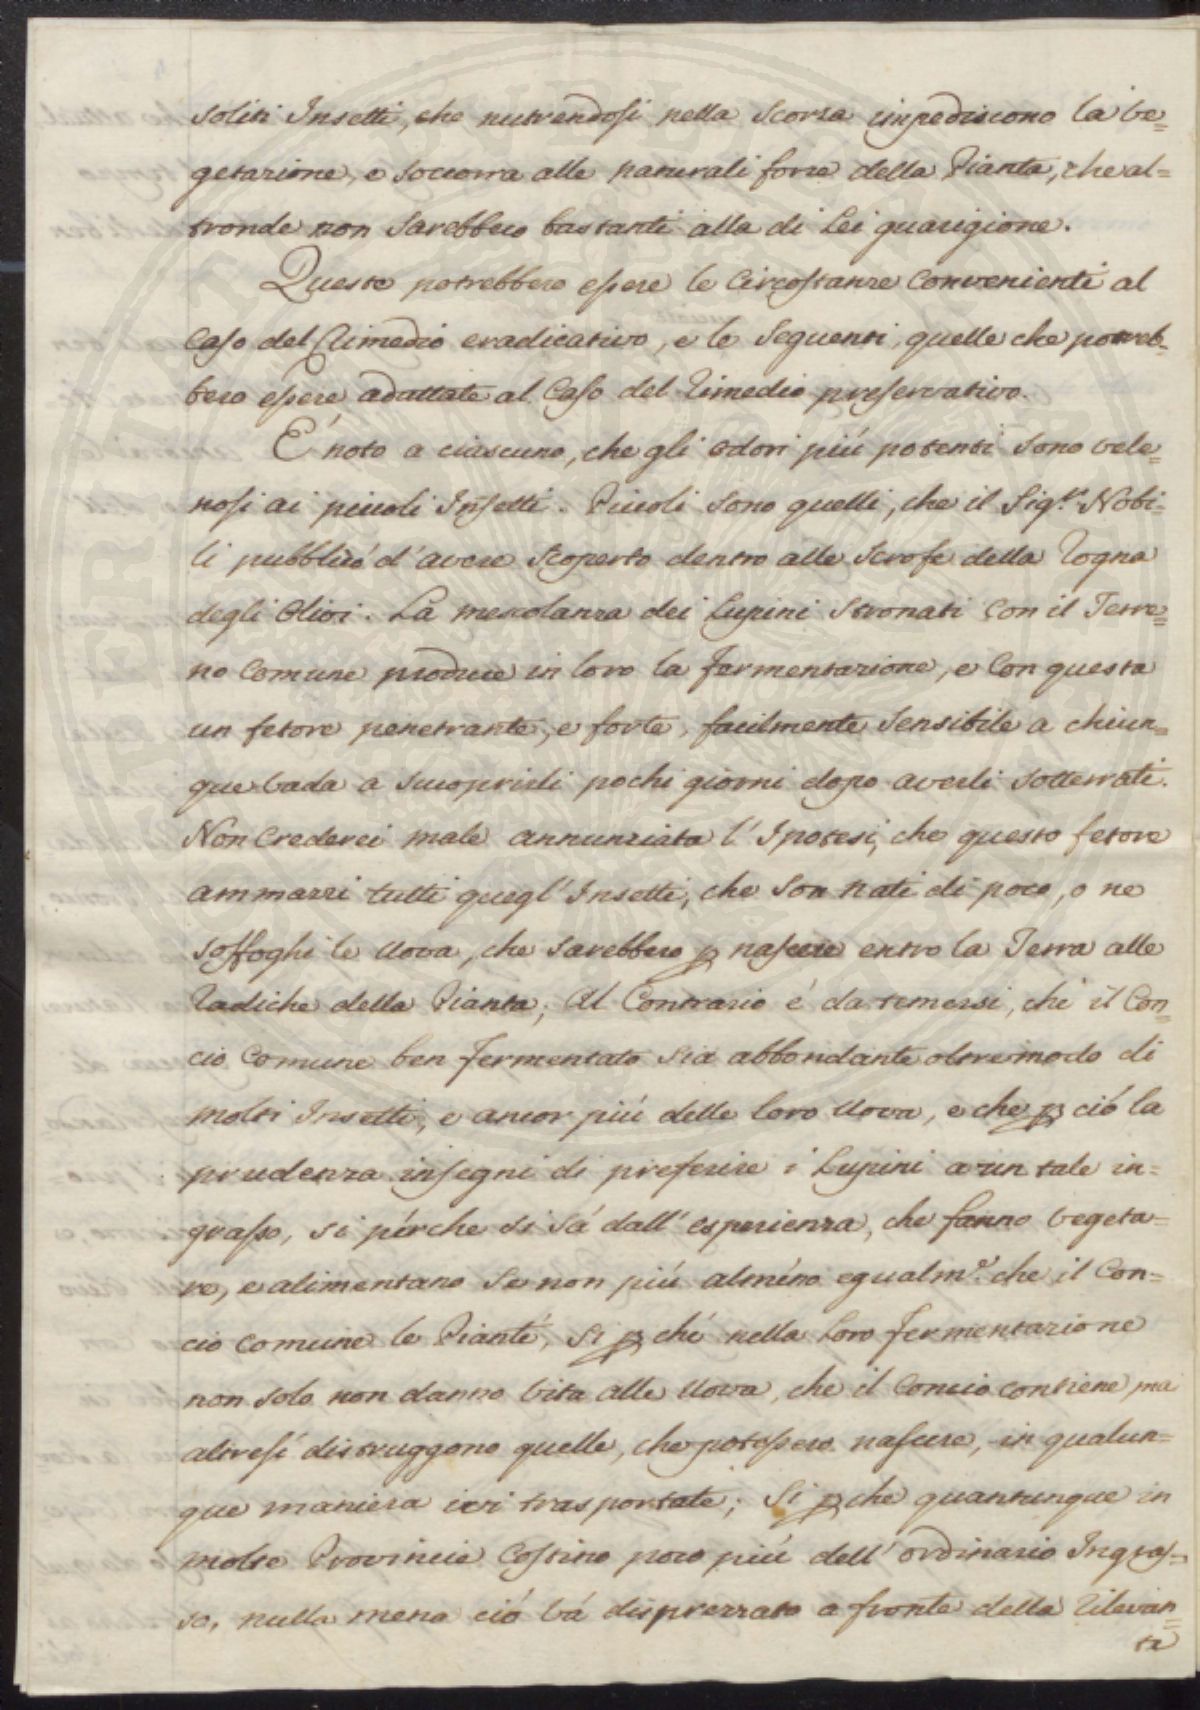 soliti Insetti, che nutrendosi nella Scorza impediscono la ve=
getazione, e soccorra alle naturali forze della Pianta, che al=
tronde non sarebbero bastanti alla di Lei guarigione.
Queste potrebbero essere le Circostanze Convenienti al
Caso del Rimedio eradicativo, e le Seguenti, quelle che potreb=
bero essere adattate al Caso del Rimedio preservativo.
É noto a ciascuno, che gli odori piú potenti sono vele=
nosi ai piccoli Insetti. Piccoli sono quelli, che il Sig.r Nobi=
li pubblicó d'avere scoperto dentro alle Scrofe della Rogna
degli Olivi. La mescolanza dei Lupini stronati con il Terre=
no Comune produce in loro la fermentazione, e Con questa
un fetore penetrante, e forte, facilmente Sensibile a chiun=
que vada a scuoprirli pochi giorni dopo averli sotterrati.
Non Crederei male annunziata l'Ipotesi, che questo fetore
ammazzi tutti quegl'Insetti, che son nati di poco, o ne
soffoghi le Uova, che sarebbero p nascere entro la Terra alle
Radiche della Pianta; Al Contrario é da temersi, che il Con=
cio Comune ben fermentato sia abbondante oltremodo di
molti Insetti, e ancor piú delle loro Uova, e che p ció la
prudenza insegni di preferire i Lupini a un tale in=
grasso, si pérche si sá dall'esperienza, che fanno vegeta=
re, e alimentano se non piú alméno egualm.e che il Con=
cio comune le Piante, si p ché nella Loro fermentazione
non solo non danno vita alle Uova, che il Concio contiene ma
altresí distruggono quelle, che potessero nascere, in qualun=
que maniera ivi trasportate; Si p che quantunque in
molte Provincie Costino poco piú dell'ordinario Ingras=
so, nulla meno ció vá disprezzato a fronte della Rilevan=
te